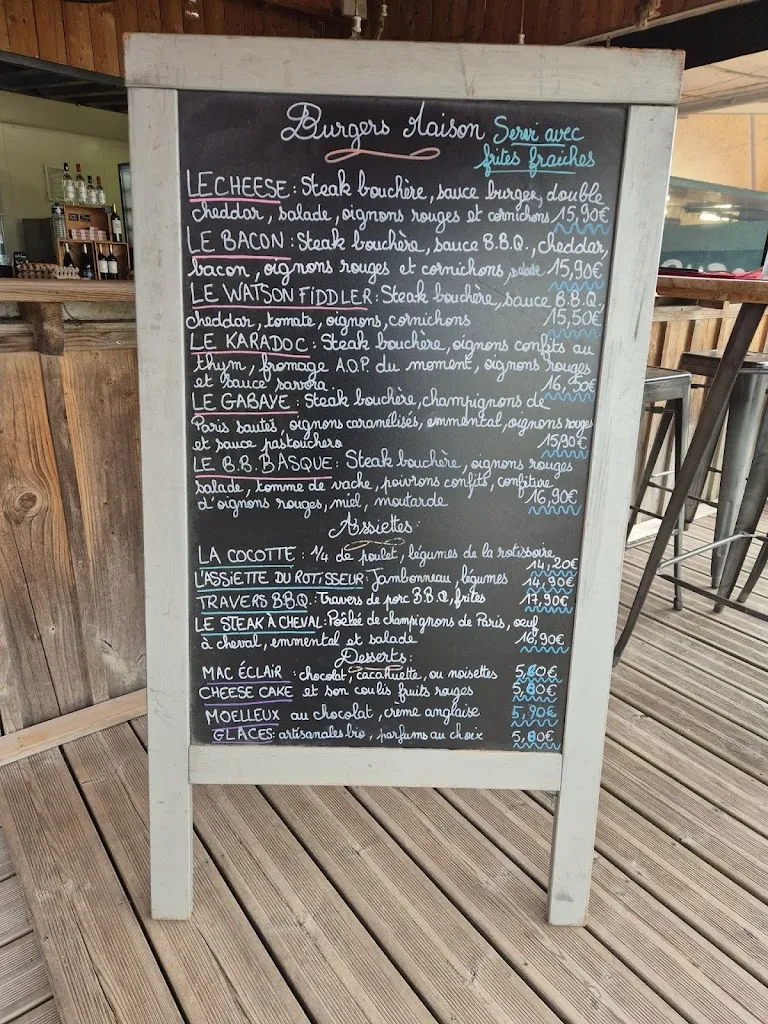 Burgers Maison
Servi avec
frites fraîches
LE CHEESE : Steak bouchère, sauce burger, double
cheddar, salade, oignons rouges et cornichons 15,90€
LE BACON : Steak bouchère, sauce B.B.Q., cheddar,
bacon, oignons rouges et cornichons, salade 15,90€
LE WATSON FIDDLER : Steak bouchère, sauce B.B.Q.
cheddar, tomate, oignons, cornichons 15,50€
LE KARADOC : Steak bouchère, oignons confits au
thym, fromage A.O.P. du moment, oignons rouges
et sauce savora. 16,50€
LE GABAYE : Steak bouchère, champignons de
Paris sautés, oignons caramélisés, emmental, oignons rouges
et sauce pastouchero 15,90€
LE B.B. BASQUE : Steak bouchère, oignons rouges
salade, tomme de vache, poivrons confits, confiture
d'oignons rouges, miel, moutarde 16,90€
Assiettes :
LA COCOTTE : 1/4 de poulet, légumes de la rotissoire
14,20€
L'ASSIETTE DU ROTISSEUR : Jambonneau, légumes 14,90€
TRAVERS B.B.Q. : Travers de porc B.B.Q, frites 17,90€
LE STEAK À CHEVAL : Poêlée de champignons de Paris, oeuf
à cheval, emmental et salade 16,90€
Desserts :
MAC ÉCLAIR : chocolat, cacahuette, ou noisettes 5,60€
CHEESE CAKE et son coulis fruits rouges 5,60€
MOELLEUX au chocolat, crème anglaise 5,90€
GLACES : artisanales bio, parfums au choix 5,80€